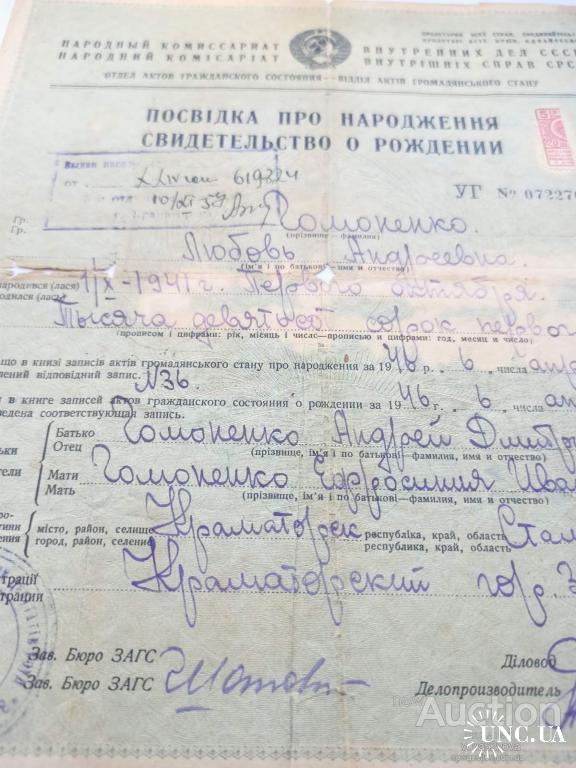 ПРОЛЕТАРИИ ВСЕХ СТРАН, СОЕДИНЯЙТЕСЬ
НАРОДНЫЙ КОМИССАРИАТ ВНУТРЕННИХ ДЕЛ СССР
НАРОДНИЙ КОМІСАРІАТ ВНУТРІШНІХ СПРАВ СРС
ОТДЕЛ АКТОВ ГРАЖДАНСКОГО СОСТОЯНИЯ—ВІДДІЛ АКТІВ ГРОМАДЯНСЬКОГО СТАНУ
ПОСВІДКА ПРО НАРОДЖЕННЯ
СВИДЕТЕЛЬСТВО О РОЖДЕНИИ
619224
от
УГ № 072270
Гр. Гомоненко.
Гр. (прізвище—фамилия)
Любовь Андреевна.
(ім'я і по батькові—имя и отчество)
народився (лася) 1/X-1941 г. Первого октября.
одился (лась)
Тысяча девятьсот сорок первого
(прописом і цифрами: рік, місяць і число—прописью и цифрами: год, месяц и число)
що в книзі записів актів громадянського стану про народження за 1946 р. 6 числа апр
лений відповідний запис. № 36.
в книге записей актов гражданского состояния о рождении за 1946 г. 6 числа ап
ведена соответствующая запись.
Батько Гомоненко Андрей Дмитр
Отец (прізвище, ім'я і по батькові—фамилия, имя и отчество)
ьки
тели
Мати Гомоненко Евфросиния Ива
Мать (прізвище, ім'я і по батькові—фамилия, имя и отчество)
місто, район, селище Краматорск республіка, край, область Стал
город, район, селение республика, край, область
ения
трації Краматорский гор. З
трации
Зав. Бюро ЗАГС Діловод
Зав. Бюро ЗАГС Делопроизводитель
Auction
UNC.UA